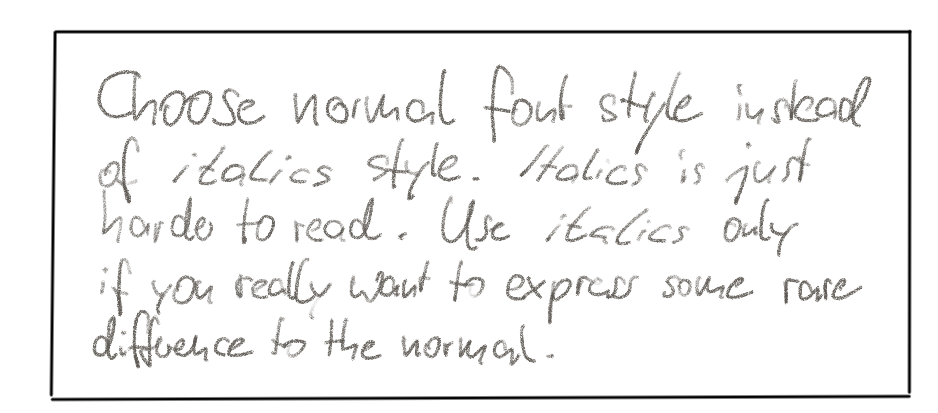 Choose normal font style instead
of italics style. Italics is just
harder to read. Use italics only
if you really want to express some rare
difference to the normal.